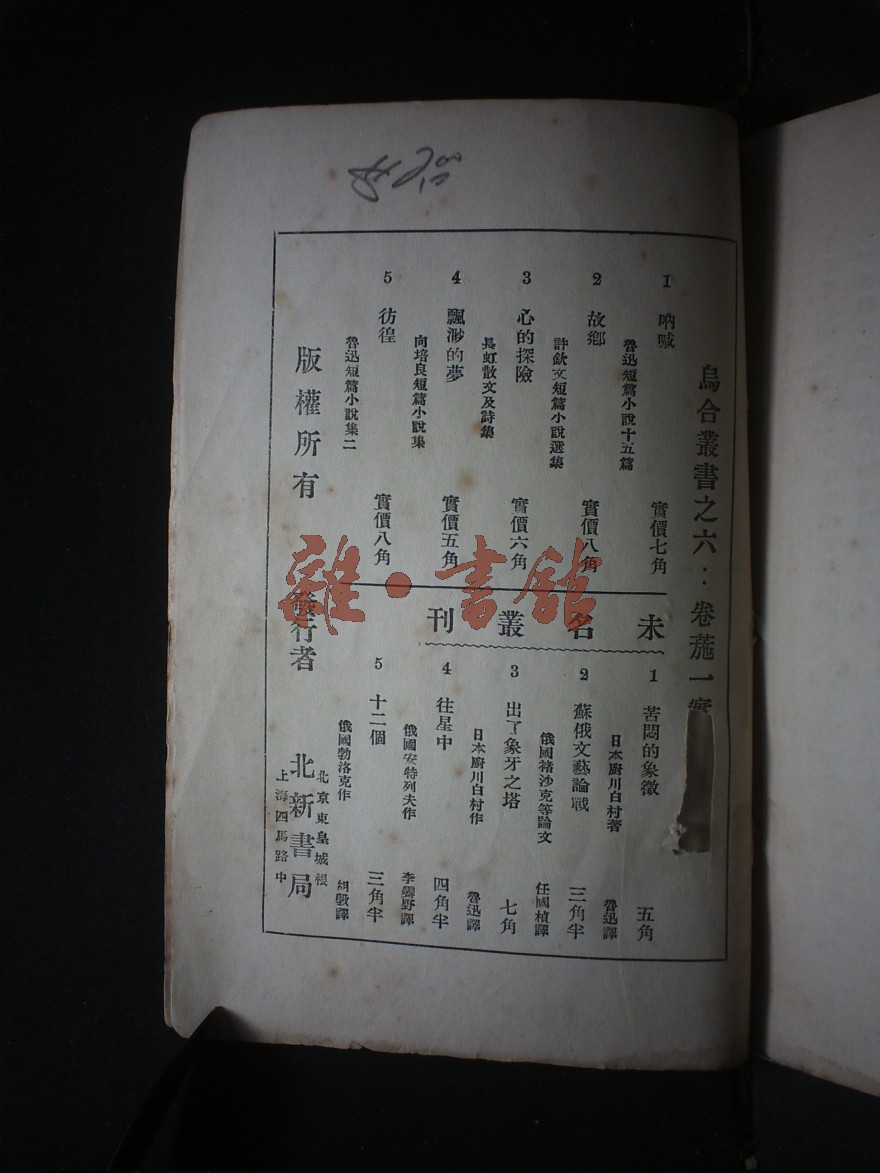 烏合叢書之六：卷葹一實
1 吶喊
魯迅短篇小說十五篇
實價七角
2 故鄉
許欽文短篇小說選集
實價八角
3 心的探險
長虹散文及詩集
實價六角
4 飄渺的夢
向培良短篇小說集
實價五角
5 彷徨
魯迅短篇小說集二
實價八角
未名叢刊
1 苦悶的象徵
日本廚川白村著
魯迅譯
五角
2 蘇俄文藝論戰
俄國褚沙克等論文
任國楨譯
三角半
3 出了象牙之塔
日本廚川白村作
魯迅譯
七角
4 往星中
俄國安特列夫作
李霽野譯
四角半
5 十二個
俄國勃洛克作
胡斅譯
三角半
版權所有
發行者
北京東皇城根
北新書局
上海四馬路中
雜·書館